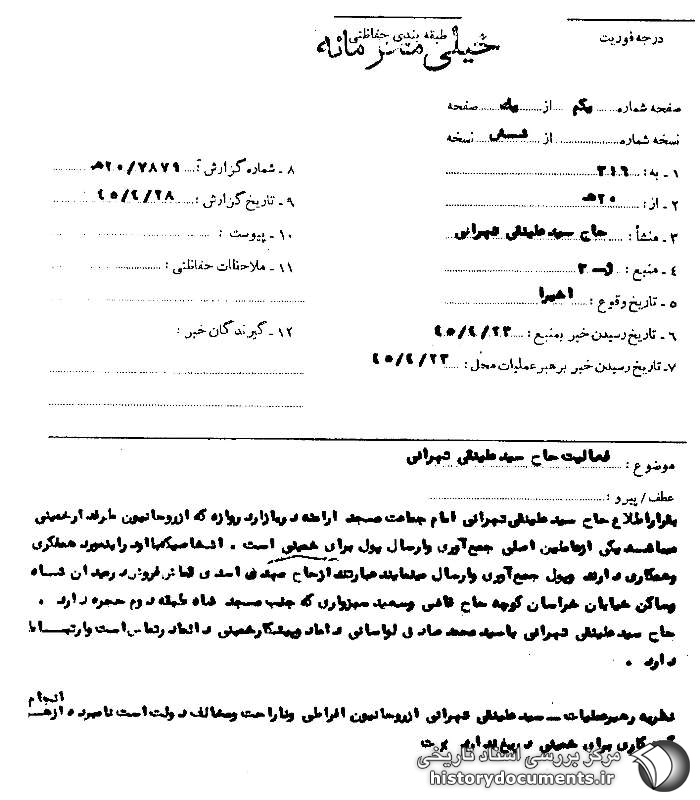 درجه فوریت
طبقه بندی حفاظتی
خیلی محرمانه
صفحه شماره یکم از یک صفحه
نسخه شماره از شش نسخه
۱ - به : ۳۱۶
۲ - از : ۲۰ هـ
۳ - منشأ : حاج سید علینقی تهرانی
۴ - منبع :
۵ - تاریخ وقوع : اخیرا
۶ - تاریخ رسیدن خبر بمنبع : ۴۵/۴/۲۳
۷- تاریخ رسیدن خبر برهبر عملیات محل : ۴۵/۴/۲۳
۸ - شماره گزارش : ۲۰/۷۸۷۹ هـ
۹ - تاریخ گزارش : ۴۵/۴/۲۸
۱۰ - پیوست :
۱۱ - ملاحظات حفاظتی :
۱۲ - گیرندگان خبر :
موضوع : فعالیت حاج سید علینقی تهرانی
عطف / پیرو :
بقرار اطلاع حاج سید علینقی تهرانی امام جماعت مسجد ارامنه در بازار دروازه که از روحانیون طرفدار خمینی
میباشد یکی از عاملین اصلی جمع آوری وارسال پول برای خمینی است . اشخاصیکه با او در اینمورد همفکری
وهمکاری دارند وپول جمع آوری وارسال مینمایند عبارتند از حاج مهدی اسدی فروش در میدان شاه
وساکن خیابان خراسان کوچه حاج قاضی وسعید سبزواری که جنب مسجد شاه طبقه دوم حجره دارد .
حاج سید علینقی تهرانی با سید محمد صادق لواسانی داماد وپیشکار خمینی دائما در تماس است وارتباط
دارد .
نظریه رهبر عملیات ــ سید علینقی تهرانی از روحانیون افراطی وناراحت ومخالف دولت است نامبرده از انجام
کاری برای خمینی دریغ ندارد
مرکز بررسی اسناد تاریخی
historydocuments.ir